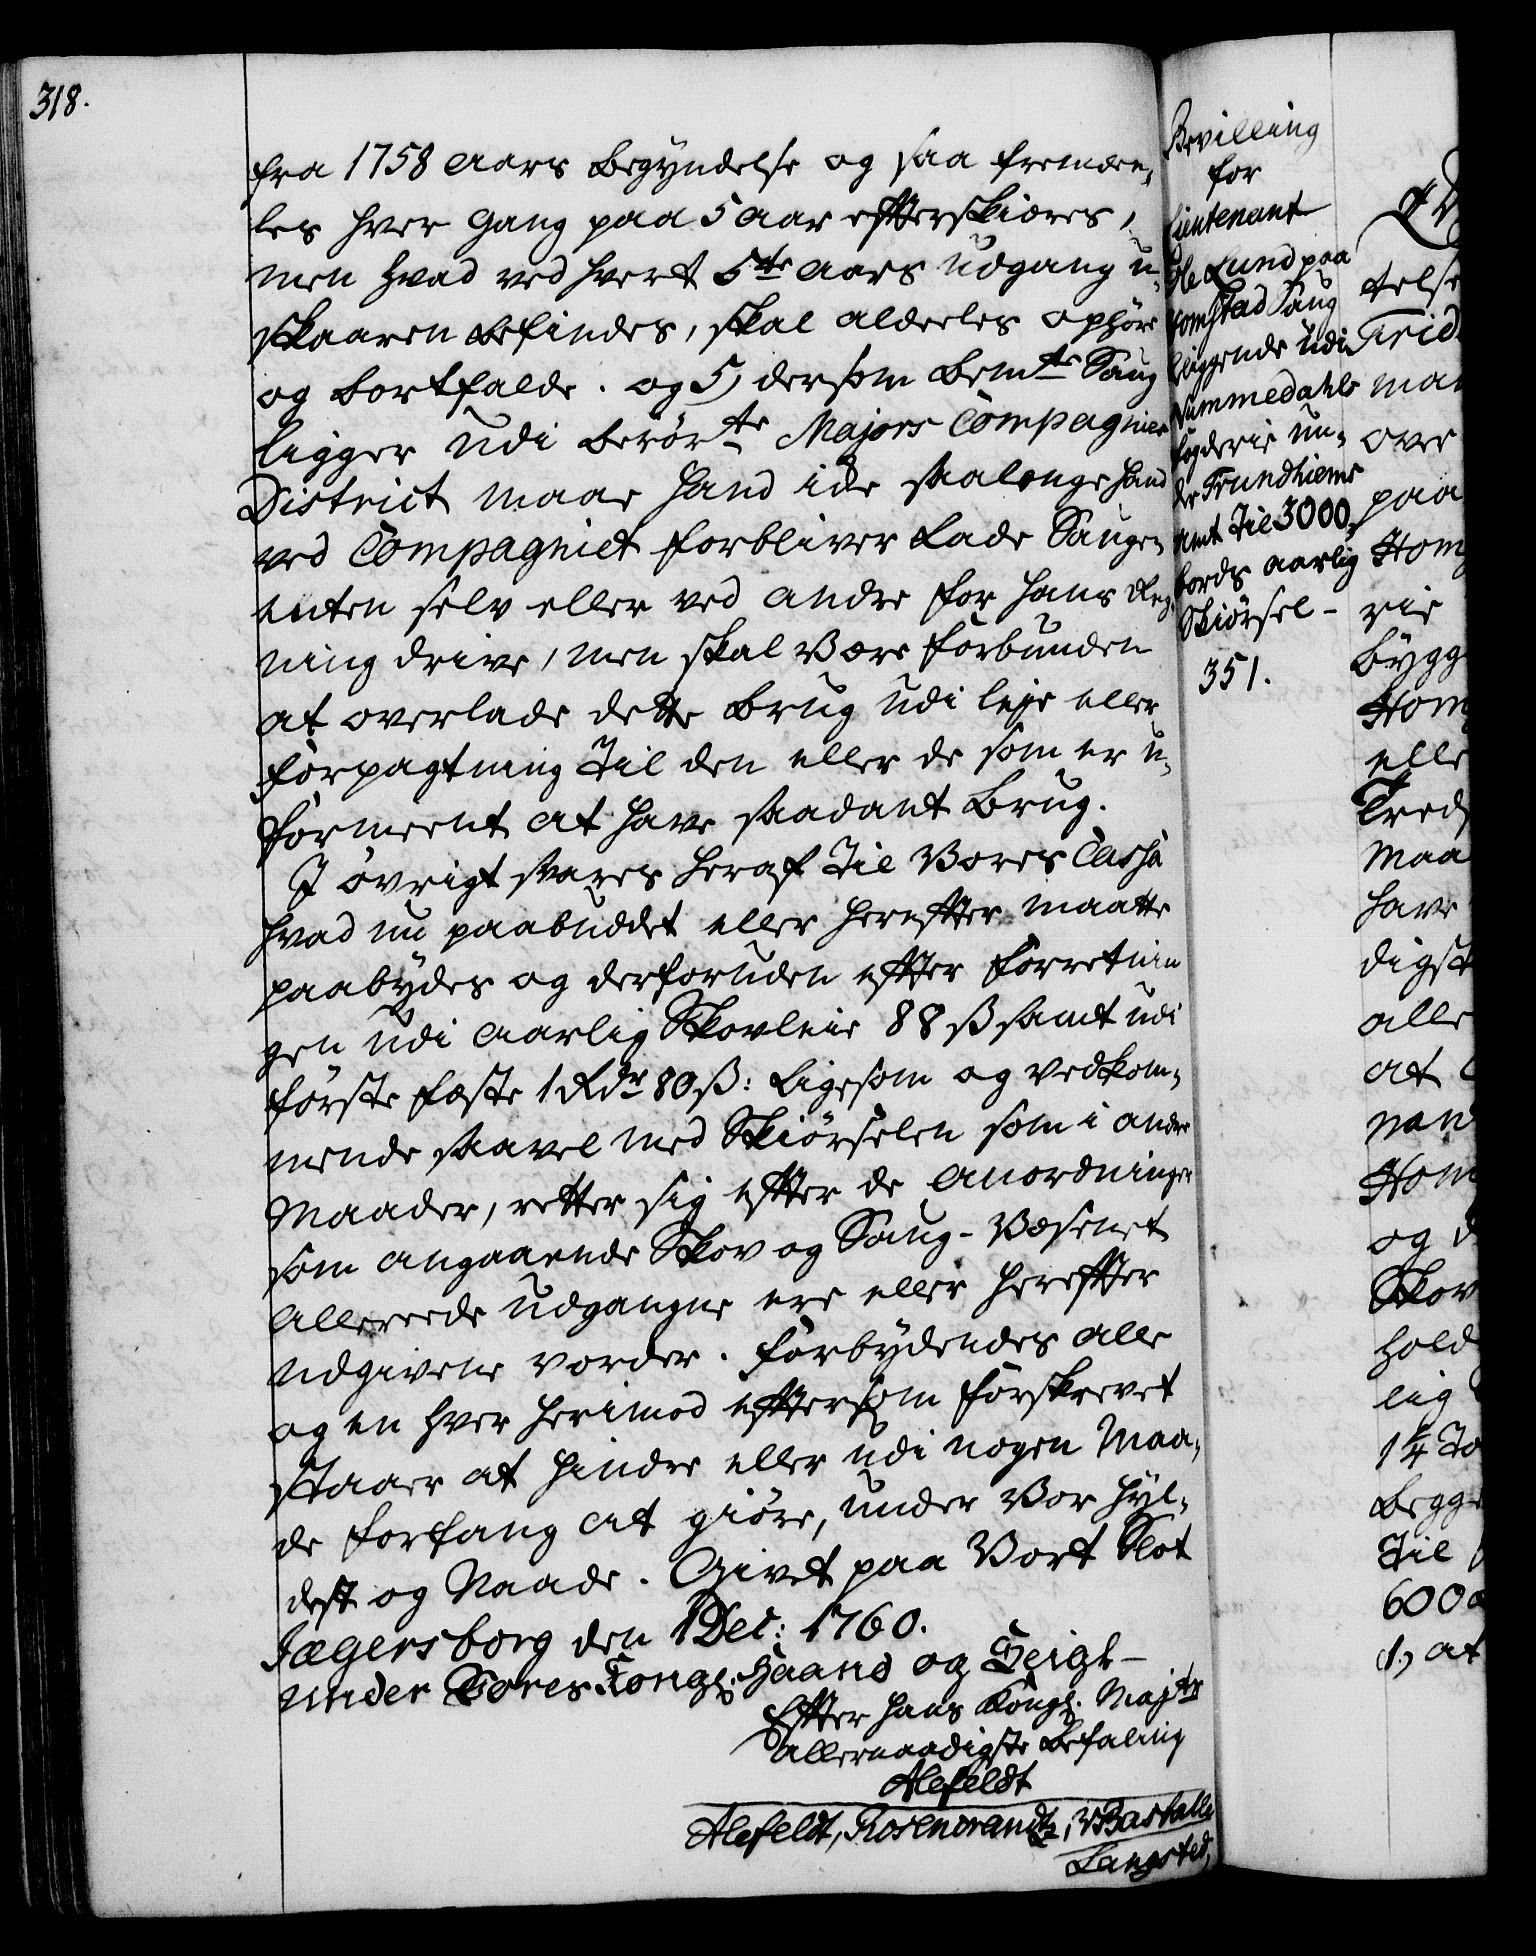 318.
fra 1758 Aars Begyndelse og saa fremdee,
les hver Gang paa 5 Aar efterskiæres,
men hvad ved hvert 5te Aars Udgang u,
skaaren befindes, skal aldeeles ophøre
og bortfalde. og 5) dersom bemte Saug
ligger udi berørte Majors Compagnies
District maae hand ikke saalenge hand
ved Compagniet forbliver lade Saugen
enten selv eller ved andre for hans Reg,
ning drive, men skal være forbunden
at overlade dette Brug udi leje eller
forpagtning til den eller de som er u,
formeent at have saadant Brug.
I øvrigt svares heraf til Vores Cassa
hvad nu paabuddet eller herefter maatte
paabydes og desforuden efter forretnin
gen udi aarlig Skovleie 88 ß samt udi
første fæste 1 Rdr 80 ß: Ligesom og vedkom,
mende saavel med Skiørselen som i andre
Maader, retter sig efter de Anordninger
som angaaende Skov og Saug-Væsenet
allereede udgangne ere eller herefter
udgivene vorder. Forbydendes alle
og en hver herimod eftersom forskrevet
staaer at hindre eller udi nogen Maa,
de forfang at giøre, under Vor Hyl,
dest og Naade. Givet paa Vort Slot
Jægersborg den 1 Dec: 1760.
Under Vores Kongl. Haand og Seigl-
Efter Hans Kongl. Majts
allernaadigste Befaling
Alefeldt
Alefeldt, Rosencrantz,
Langsted,
Bevilling
for
Lieutenant
Ole Lund paa
Homstad Saug
liggende udi
Nummedahls
fogderie un,
der Trundhiems
Amt til 3000
bords aarlig
Skiørsel-
351.
telse
Frid
man
over
paa
Hom
rie
bygg
Hom
elle
Treds
maa
have
digst
alle
at
Hom
og d
Skov
hold
lig
1¼ To
begge
til
600
1, at